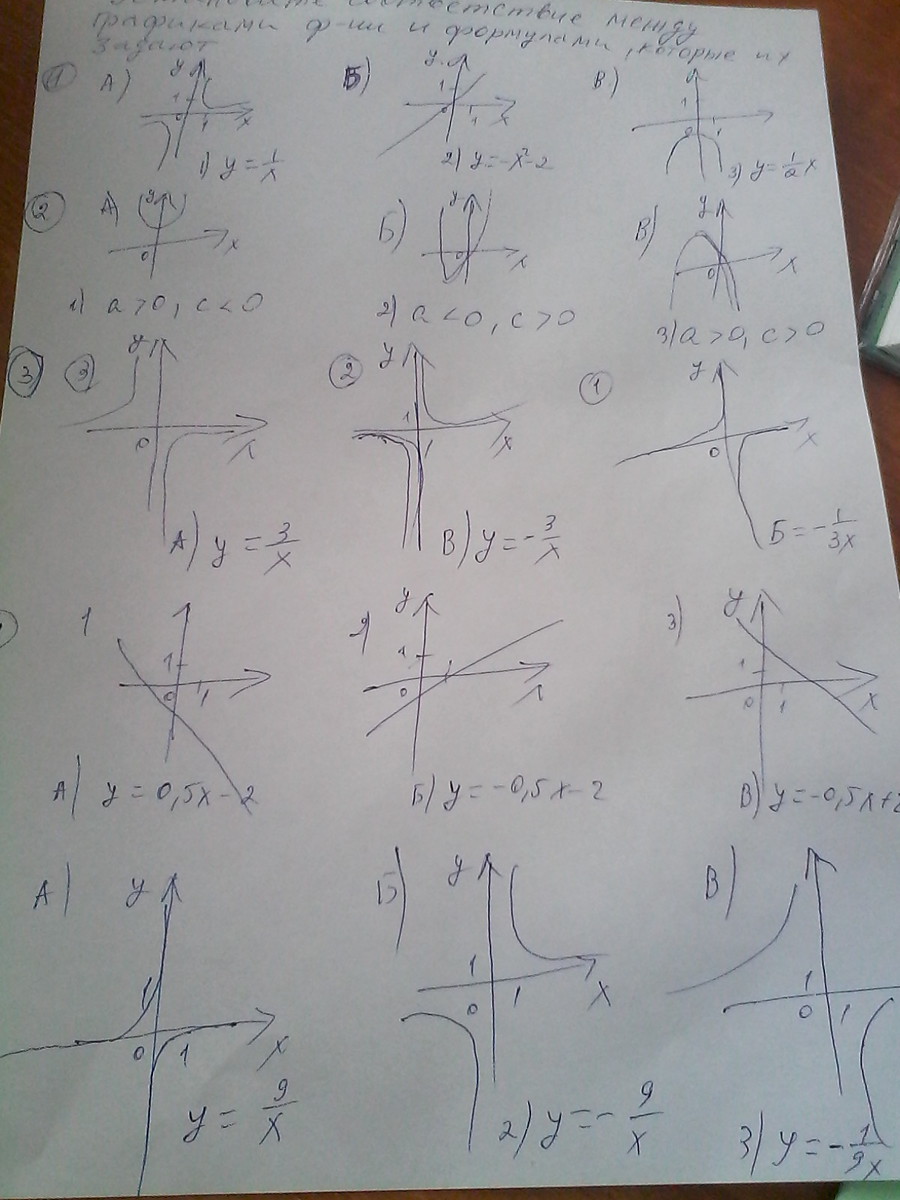 соответствие между
графиками ф-ии и формулами, которые их
задают
1 А) Б) В)
y y
1 1 1
0 1 x 1 x 0 1
1) y = 1/x 2) y = -x² - 2 3) y = 1/2 x
2 А) Б) В)
y y y
0 x x 0 x
1) a > 0, c < 0 2) a < 0, c > 0 3) a > 0, c > 0
3 3 2 1
y y y
1
0 x 1 x 0 x
А) y = 3/x В) y = - 3/x Б = - 1/3x
1 2) 3)
y y
1 1 1
0 1 0 1 x 0 1 x
А) y = 0,5x - 2 Б) y = -0,5x - 2 В) y = -0,5x +
А) Б) В)
y y
1 1 1
0 1 x 0 1 x 0 1
y = 9/x 2) y = - 9/x 3) y = - 1/9x